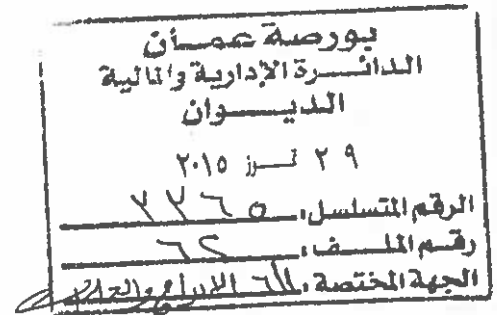 بورصة عمان
الدائرة الإدارية والمالية
الديوان
٢٩ تموز ٢٠١٥
الرقم المتسلسل:
رقم الملف:
الجهة المختصة: الإدراج